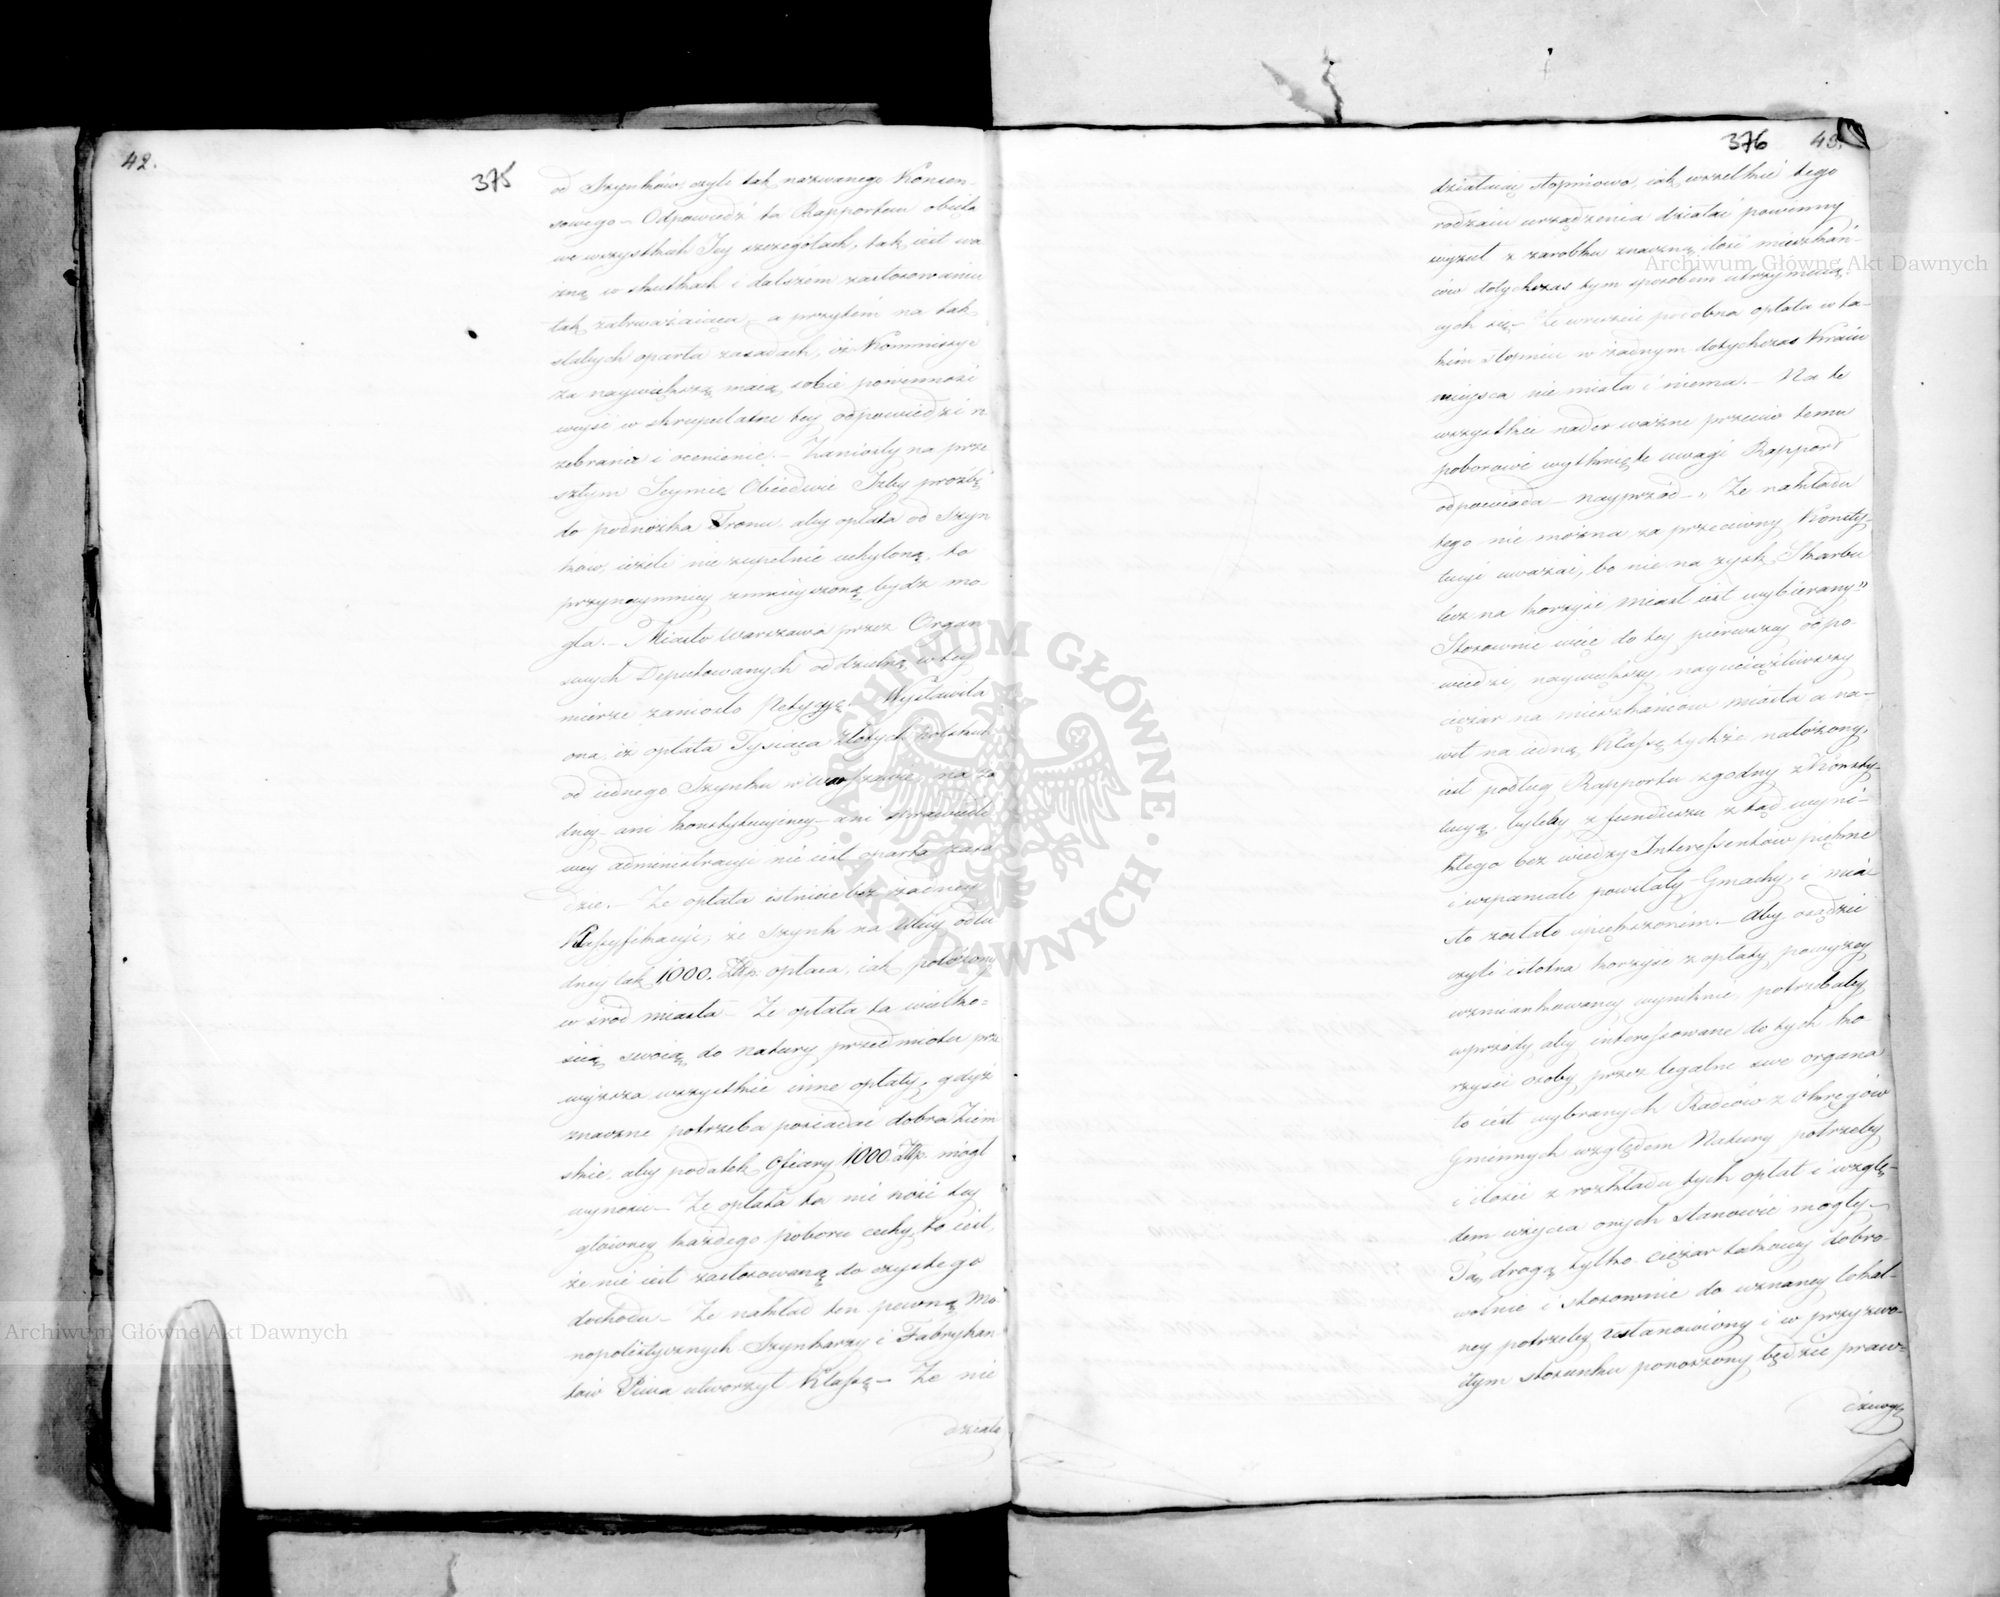 42.
375
od Szynków czyli tak nazwanego Konsen-
sowego – Odpowiedź ta Rapportem objęta
we wszystkich Jey szczegółach, tak iest wa
żną w skutkach i dalszém zastosowaniu
tak zatrważaiąca, a przytém na tak
słabych oparta zasadach, iż Kommissye
za naywiększą maią sobie powinność
wejść w skrupulatne tey odpowiedzi r
zebranie i ocenienie. – Zaniosły na prze
szłym Seymie Obiedwie Izby prośbę
do podnóżka Tronu, aby opłata od Szyn
ków, ieżeli nie zupełnie uchyloną, to
przynaymniey zmnieyszoną bydz mo
gła. – Miasto Warszawa przez Organ
swych Deputowanych oddzielną w tey
mierze zaniosło Petycyę. Wystawiła
ona, iż opłata Tysiąca złotych polskich
od iednego Szynku w Warszawie, na ża
dney – ani konstytucyiney – ani sprawiedli
wey administracyi nie iest oparta zasa
dzie. – Że opłata istnieie bez żadney
Klassyfikacyi, że Szynk na Ulicy odlu
dney tak 1000. Złp: opłaca, iak położony
w śród miasta – Że opłata ta wielko=
ścią swoią do natury przedmiotu prze
wyższa wszystkie inne opłaty, gdyż
znaczne potrzeba posiadać dobra Ziem
skie, aby podatek Ofiary 1000. Złp. mógł
wynosić – Że opłata ta nie nosi tey
główney każdego poboru cechy, to iest,
że nie iest zastosowaną do czystego
dochodu – Że nakład ten pewną Mo-
nopolistycznych Szynkarzy i Fabrykan
tów Piwa utworzył Klassę – Że nie
działa
376 43.
działaiąc stopniowo, iak wszelkie tego
rodzaiu urządzenia działać powinny
wyzuł z zarobku znaczną ilość mieszkań-
ców dotychczas tym sposobem utrzymuią
cych się – Że wreszcie podobna opłata w ta-
kim stopniu w żadnym dotychczas Kraiu
mieysca nie miała i niema. – Na te
wszystkie nader ważne przeciw temu
poborowi wytknięte uwagi Rapport
odpowiada – nayprzód – „Że nakładu
tego nie można za przeciwny Konsty-
tucyi uważać, bo nie na zysk Skarbu
lecz na korzyść miast iest wybierany”
Stosownie więc do tey pierwszey odpo
wiedzi, naywiększy nayuciążliwszy
ciężar na mieszkańców miasta a na-
wet na iedną Klassę tychże nałożony,
iest podług Rapportu zgodny z Konsty-
tucyą, byleby z funduszu z tąd wyni-
kłego bez wiedzy Interessentów piękne
i wspaniałe powstały Gmachy, i mia
sto zostało upiększoném. – Aby osądzić
czyli istotna korzyść z opłaty powyżey
wzmiankowaney wyniknie, potrzebaby
wprzódy, aby interessowane do tych ko
rzyści osoby, przez legalne swe organa
to iest wybranych Radców z Okręgów
Gminnych względem Natury potrzeby
i ilości z rozkładu tych opłat i wzglę-
dem użycia onych stanowić mogły –
Tą drogą tylko ciężar takowy dobro-
wolnie i stosownie do uznaney lokal-
ney potrzeby ustanowiony i w przyzwo-
itym stosunku ponoszony będzie praw=
dziwą